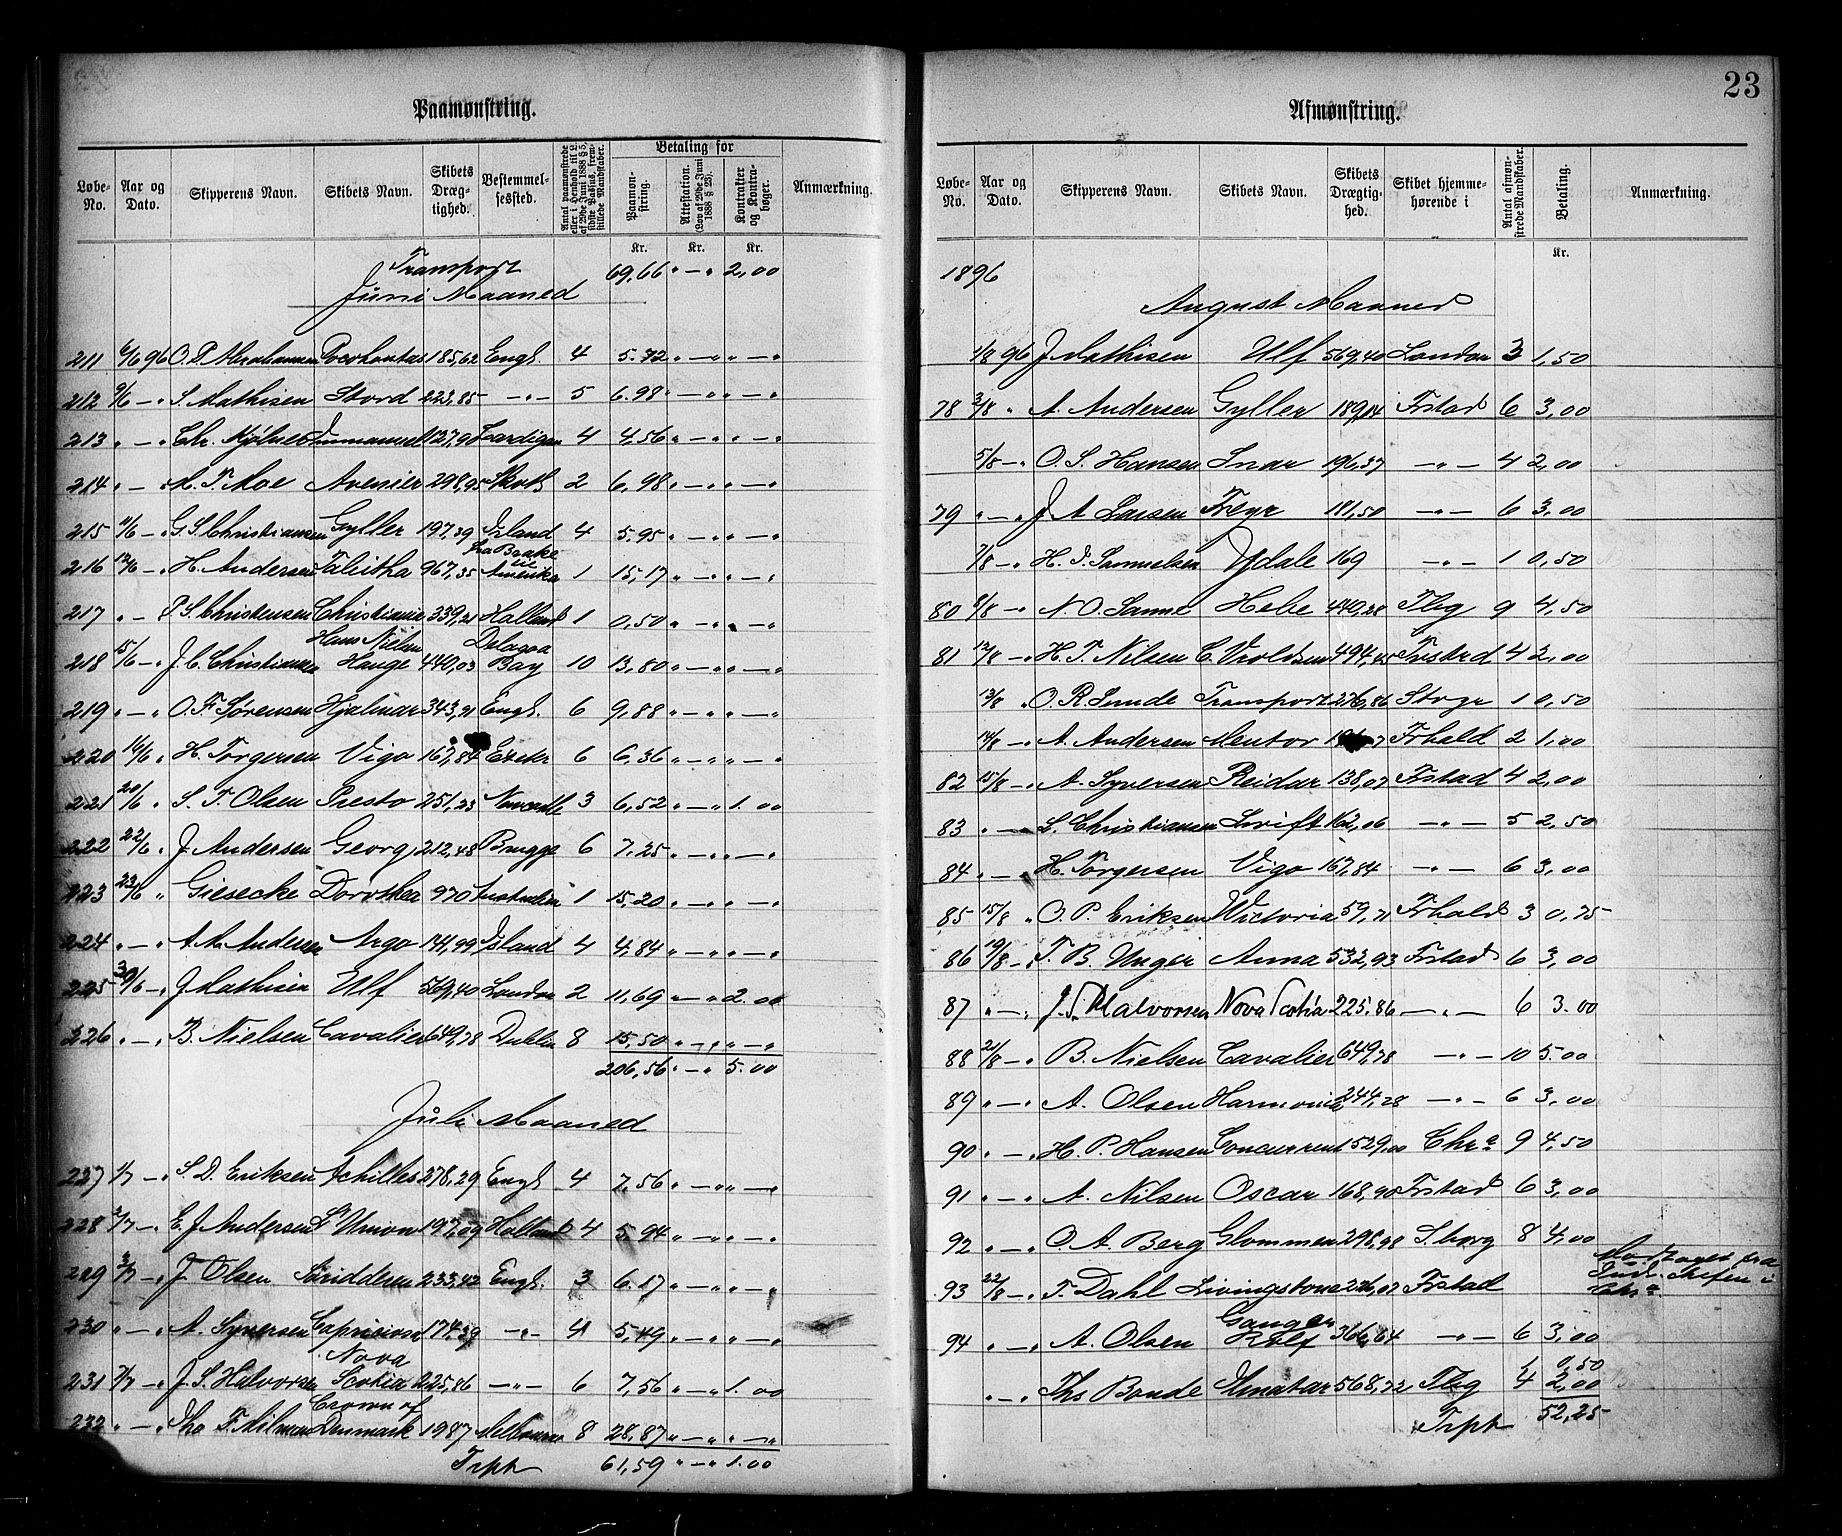 23
Paamønstring.
Løbe-No. | Aar og Dato. | Skipperens Navn. | Skibets Navn. | Skibets Dræg-tighed. | Bestemmel-sessted. | Antal paamønstrede eller i Henhold til L. af 29de Juni 1888 § 5, sidste Passus, frem-stillede Mandskaber. | Betaling for Paamøn-string. Kr. | Attestation. (Lov af 29de Juni 1888 § 23). Kr. | Kontrakter og Kontra-bøger. Kr. | Anmærkning.
Transport 69,66 " — " 2,00
Juni Maaned
211 6/6 96 O. P. Abrahamsen Pocohontas 185,62 Engl. 4 5.72 " — " " — "
212 9/6 — " S. Mathisen Stord 223,85 — " — 5 6.98 " — " " — "
213 " — " Chr. Mjølnes Immanuel 127,90 Cardigan 4 4,56 " — " " — "
214 " — " M. T. Moe Avenier 298,95 Skotl 2 6,98 " — " " — "
215 11/6 — " G. S. Christiansen Gyller 197,39 Irland 4 5.95 " — " " — "
216 12/6 — " H. Andersen Talitha 967,35 fra Brake til Amerika 1 15,17 " — " " — "
217 " — " P. S. Christensen Christiania 339,21 Holland 1 0,50 " — " " — "
218 15/6 — " J. C. Christiansen Hans Nielsen Hauge 440,03 Delagoa Bay 10 13,80 " — " " — "
219 " — " O. F. Sørensen Hjalmar 343,91 Engl. 6 9,88 " — " " — "
220 16/6 " H. Torgersen Vigo 167,84 Exeter 6 6,36 " — " " — "
221 20/6 " S. T. Olsen Presto 251,23 Newcastle 3 6,52 " — " 1.00
222 22/6 " J. Andersen Georg 212,48 Brugge 6 7,25 " — " " — "
223 23/6 " Giesecke Dorothea 970 Australien 1 15,20 " — " " — "
224 " — " A. M. Andersen Argo 141,99 Island 4 4,84 " — " " — "
225 30/6 — " J. Mathisen Ulf 569,40 London 2 11,69 " — " 2.00
226 " — " B. Nielsen Cavalier 649,78 Dublin 8 15,50 " — " " — "
206,56 " — " 5.00
Juli Maaned
227 1/7 — " S. D. Eriksen Achilles 278,29 Engl 4 7,56 " — " " — "
228 2/7 — " E. J. Andersen L'Union 197,09 Holland 4 5.94 " — " " — "
229 3/7 — " J. Olsen 233,42 Engl. 3 6.17 " — " " — "
230 " — " A. Syversen Capricioso 174,39 — " — 4 5,49 " — " " — "
231 7/7 — " J. S. Halvorsen Nova Scotia 225,86 — " — 6 7,56 " — " 1.00
232 " — " Crown of Denmark 1987 Melbourne 8 28,87 " — " " — "
Trpt 61,59 " — " 1.00
Afmønstring.
Løbe-No. | Aar og Dato. | Skipperens Navn. | Skibets Navn. | Skibets Drægtig-hed. | Skibet hjemme-hørende i | Antal afmøn-strede Mandskaber. | Betaling. Kr. | Anmærkning.
1896
August Maaned
1/8 96 J Mathisen Ulf 569,40 London 3 1,50
78 3/8 " A. Andersen Gyller 189,14 Frstad 6 3,00
5/8 — " O. S. Hansen Snar 196,37 — " — 4 2,00
79 " — " J. A Larsen Freyr 181,50 — " — 6 3,00
7/8 — " H. J. Samuelsen Ydale 169 — " — 1 0,50
80 8/8 — " N. O. Sanne Hebe 440,28 Tbg 9 4,50
81 12/8 — " H. T. Nilsen C. Vroldsen 494,45 Frstad 4 2,00
13/8 " O. R. Lunde Transport 276,86 1 0,50
14/8 — " A. Andersen Mentor Frhald 2 1,00
82 15/8 — " A. Syversen Reidar 138,07 Frstad 4 2,00
83 " — " L. Christiansen Svift 162,06 — " — 5 2,50
84 " — " H. Torgersen Vigo 167,84 — " — 6 3,00
85 15/8 " O. P. Eriksen Victoria 59,71 Frhald 3 0,75
86 19/8 — " T. B. Unger Anna 532,93 Frstad 6 3,00
87 " — " J. S. Halvorsen Nova Scotia 225.86 — " — 6 3.00
88 21/8 — " B. Nielsen Cavalier 649,78 — " — 10 5.00
89 " — " A. Olsen Harmonia 244,28 — " — 6 3,00
90 " — " H. P. Hansen Concurrent 529,00 Chra 9 4,50
91 " — " A. Nilsen Oscar 168,90 Frstad 6 3,00
92 " — " O. A. Berg Glommen 298,98 S.borg 8 4,00
93 22/8 — " T. Dahl Livingstone 226,07 Frstad fra Chra
94 " — " A. Olsen Ganger Rolf 366,64 — " — 6 3,00
" — " Ths Bonde 568,72 Tbg 1 0,50 4 2,00
Trpt 52,25